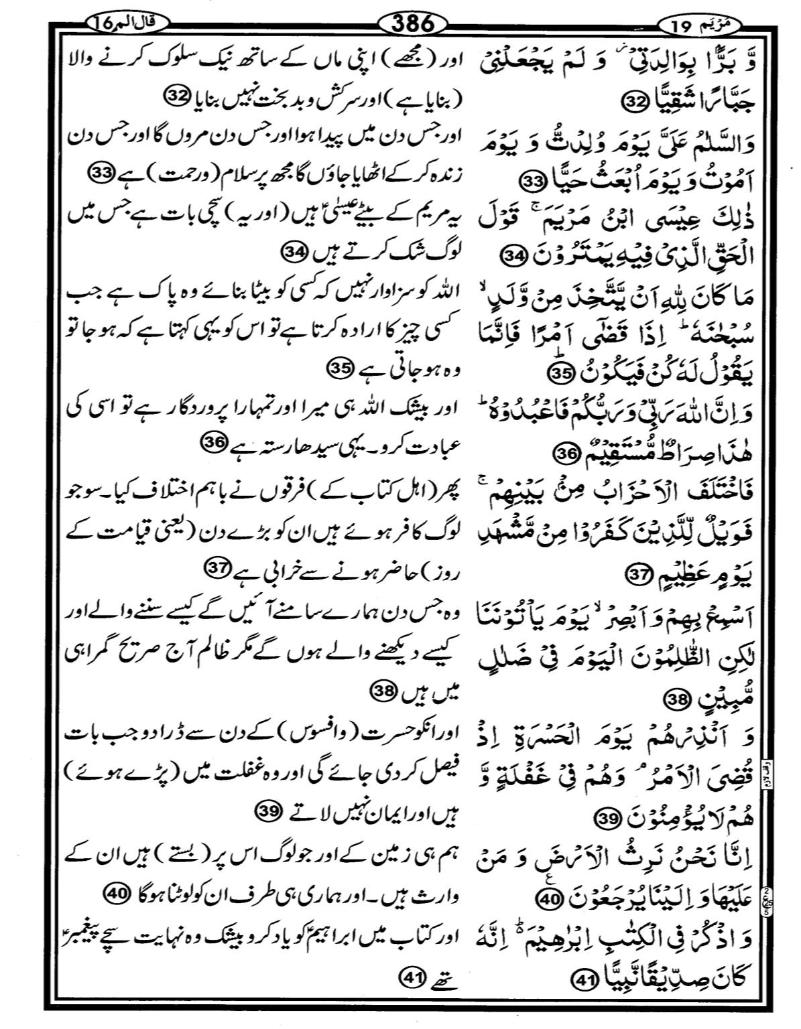 مَرْيَم 19
386
قال الم 16
وَّ بَرًّۢا بِوَالِدَتِیْ ؗ وَ لَمْ یَجْعَلْنِیْ
جَبَّارًا شَقِیًّا 32
وَالسَّلٰمُ عَلَیَّ یَوْمَ وُلِدْتُّ وَ یَوْمَ
اَمُوْتُ وَ یَوْمَ اُبْعَثُ حَیًّا 33
ذٰلِكَ عِیْسَی ابْنُ مَرْیَمَ ۚ قَوْلَ
الْحَقِّ الَّذِیْ فِیْهِ یَمْتَرُوْنَ 34
مَا كَانَ لِلّٰهِ اَنْ یَّتَّخِذَ مِنْ وَّلَدٍ ۙ
سُبْحٰنَهٗ ؕ اِذَا قَضٰۤی اَمْرًا فَاِنَّمَا
یَقُوْلُ لَهٗ كُنْ فَیَكُوْنُ ؕ 35
وَ اِنَّ اللّٰهَ رَبِّیْ وَ رَبُّكُمْ فَاعْبُدُوْهُ ؕ
هٰذَا صِرَاطٌ مُّسْتَقِیْمٌ 36
فَاخْتَلَفَ الْاَحْزَابُ مِنْۢ بَیْنِهِمْ ۚ
فَوَیْلٌ لِّلَّذِیْنَ كَفَرُوْا مِنْ مَّشْهَدِ
یَوْمٍ عَظِیْمٍ 37
اَسْمِعْ بِهِمْ وَ اَبْصِرْ ۙ یَوْمَ یَاْتُوْنَنَا
لٰكِنِ الظّٰلِمُوْنَ الْیَوْمَ فِیْ ضَلٰلٍ
مُّبِیْنٍ 38
وَ اَنْذِرْهُمْ یَوْمَ الْحَسْرَةِ اِذْ
قُضِیَ الْاَمْرُ ۘ وَ هُمْ فِیْ غَفْلَةٍ وَّ
هُمْ لَا یُؤْمِنُوْنَ 39
اِنَّا نَحْنُ نَرِثُ الْاَرْضَ وَ مَنْ
عَلَیْهَا وَ اِلَیْنَا یُرْجَعُوْنَ ع 40
وَ اذْكُرْ فِی الْكِتٰبِ اِبْرٰهِیْمَ ؕ۬ اِنَّهٗ
كَانَ صِدِّیْقًا نَّبِیًّا 41
اور (مجھے) اپنی ماں کے ساتھ نیک سلوک کرنے والا
(بنایا ہے) اور سرکش و بدبخت نہیں بنایا 32
اور جس دن میں پیدا ہوا اور جس دن مروں گا اور جس دن
زندہ کر کے اٹھایا جاؤں گا مجھ پر سلام (ورحمت) ہے 33
یہ مریم کے بیٹے عیسیٰؑ ہیں (اور یہ) سچی بات ہے جس میں
لوگ شک کرتے ہیں 34
اللہ کو سزاوار نہیں کہ کسی کو بیٹا بنائے وہ پاک ہے جب
کسی چیز کا ارادہ کرتا ہے تو اس کو یہی کہتا ہے کہ ہو جا تو
وہ ہو جاتی ہے 35
اور بیشک اللہ ہی میرا اور تمہارا پروردگار ہے تو اسی کی
عبادت کرو۔ یہی سیدھا رستہ ہے 36
پھر (اہل کتاب کے) فرقوں نے باہم اختلاف کیا۔ سو جو
لوگ کافر ہوئے ہیں ان کو بڑے دن (یعنی قیامت کے
روز) حاضر ہونے سے خرابی ہے 37
وہ جس دن ہمارے سامنے آئیں گے کیسے سننے والے اور
کیسے دیکھنے والے ہوں گے مگر ظالم آج صریح گمراہی
میں ہیں 38
اور انکو حسرت (وافسوس) کے دن سے ڈرا دو جب بات
فیصل کر دی جائے گی اور وہ غفلت میں (پڑے ہوئے)
ہیں اور ایمان نہیں لاتے 39
ہم ہی زمین کے اور جو لوگ اس پر (بستے) ہیں ان کے
وارث ہیں۔ اور ہماری ہی طرف ان کو لوٹنا ہوگا 40
اور کتاب میں ابراہیمؑ کو یاد کرو بیشک وہ نہایت سچے پیغمبر
تھے 41